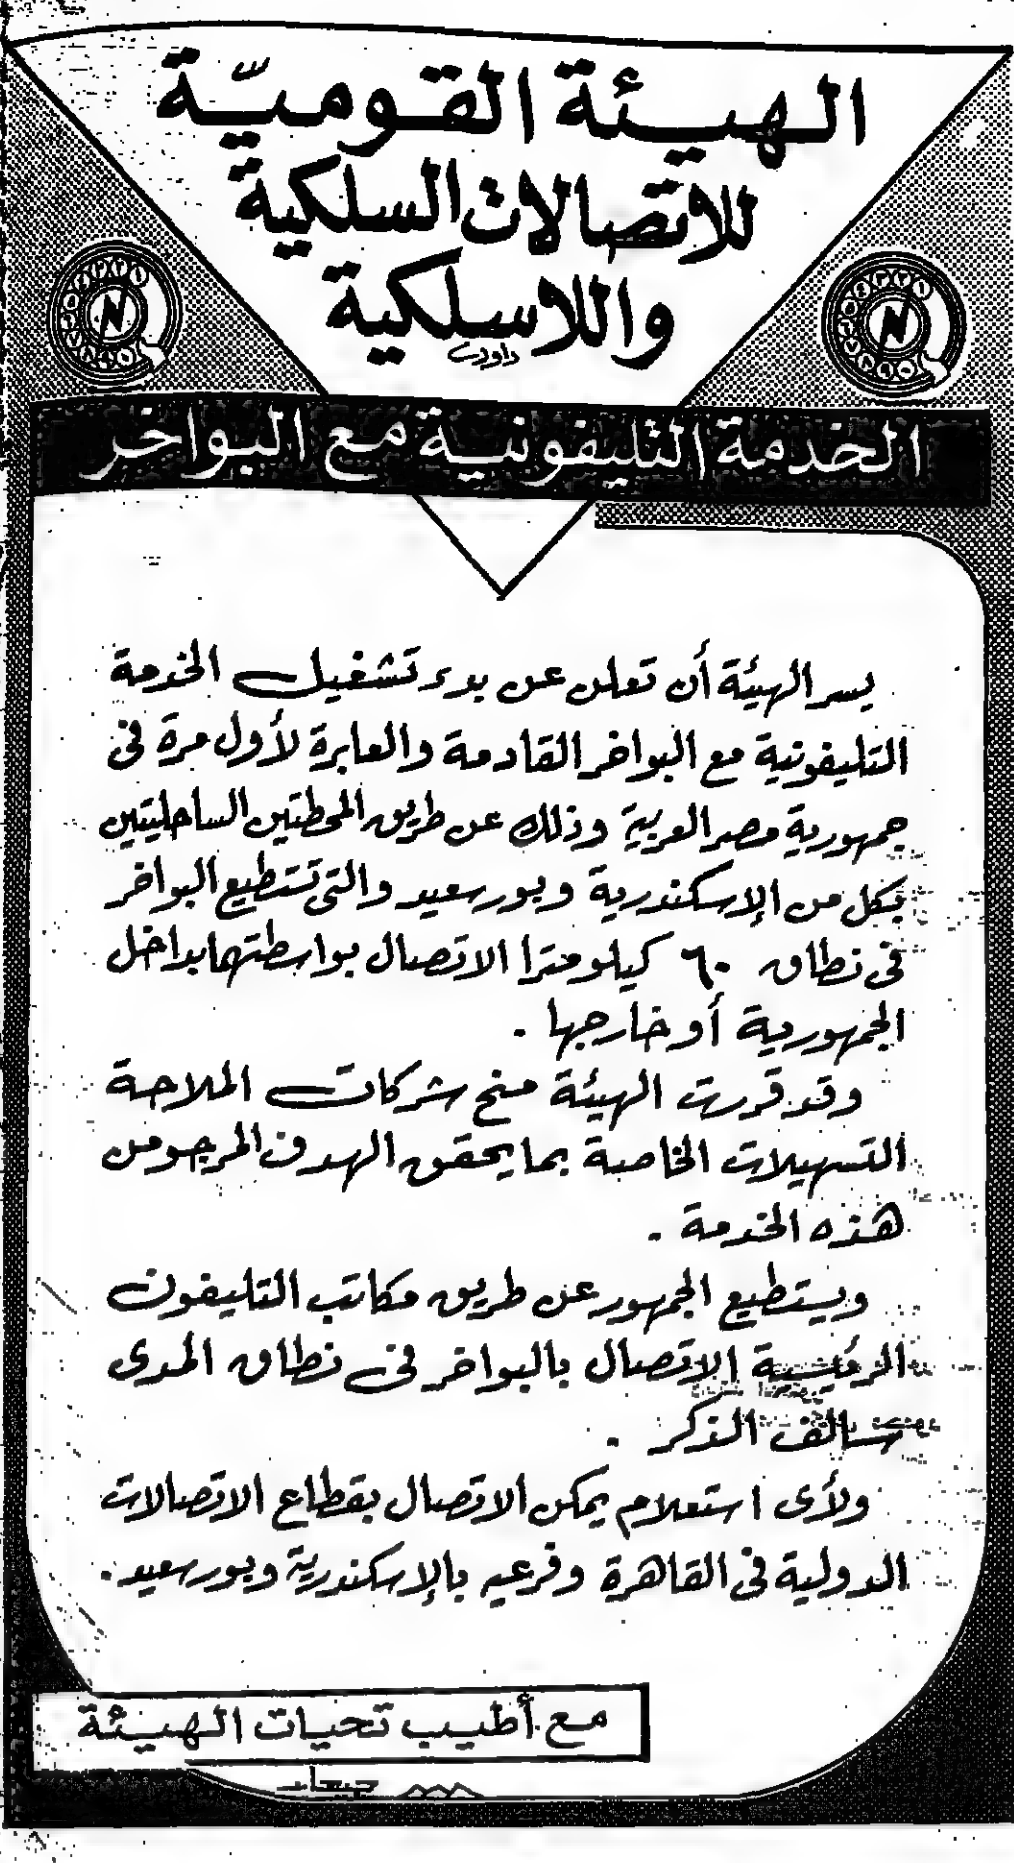 الهيئة القومية
للاتصالات السلكية
واللاسلكية
داود
الخدمة التليفونية مع البواخر
يسر الهيئة أن تعلن عن بدء تشغيل الخدمة
التليفونية مع البواخر القادمة والعابرة لأول مرة فى
جمهورية مصر العربية وذلك عن طريق المحطتين الساحليتين
بكل من الإسكندرية وبورسعيد والتى تستطيع البواخر
فى نطاق ٦٠ كيلومترا الاتصال بواسطتها بداخل
الجمهورية أو خارجها .
وقد قررت الهيئة منح شركات الملاحة
التسهيلات الخاصة بما يحقق الهدف المرجو من
هذه الخدمة .
ويستطيع الجمهور عن طريق مكاتب التليفون
الرئيسية الاتصال بالبواخر فى نطاق المدى
سالف الذكر .
ولأى استعلام يمكن الاتصال بقطاع الاتصالات
الدولية فى القاهرة وفرعيه بالإسكندرية وبورسعيد .
مع أطيب تحيات الهيئة